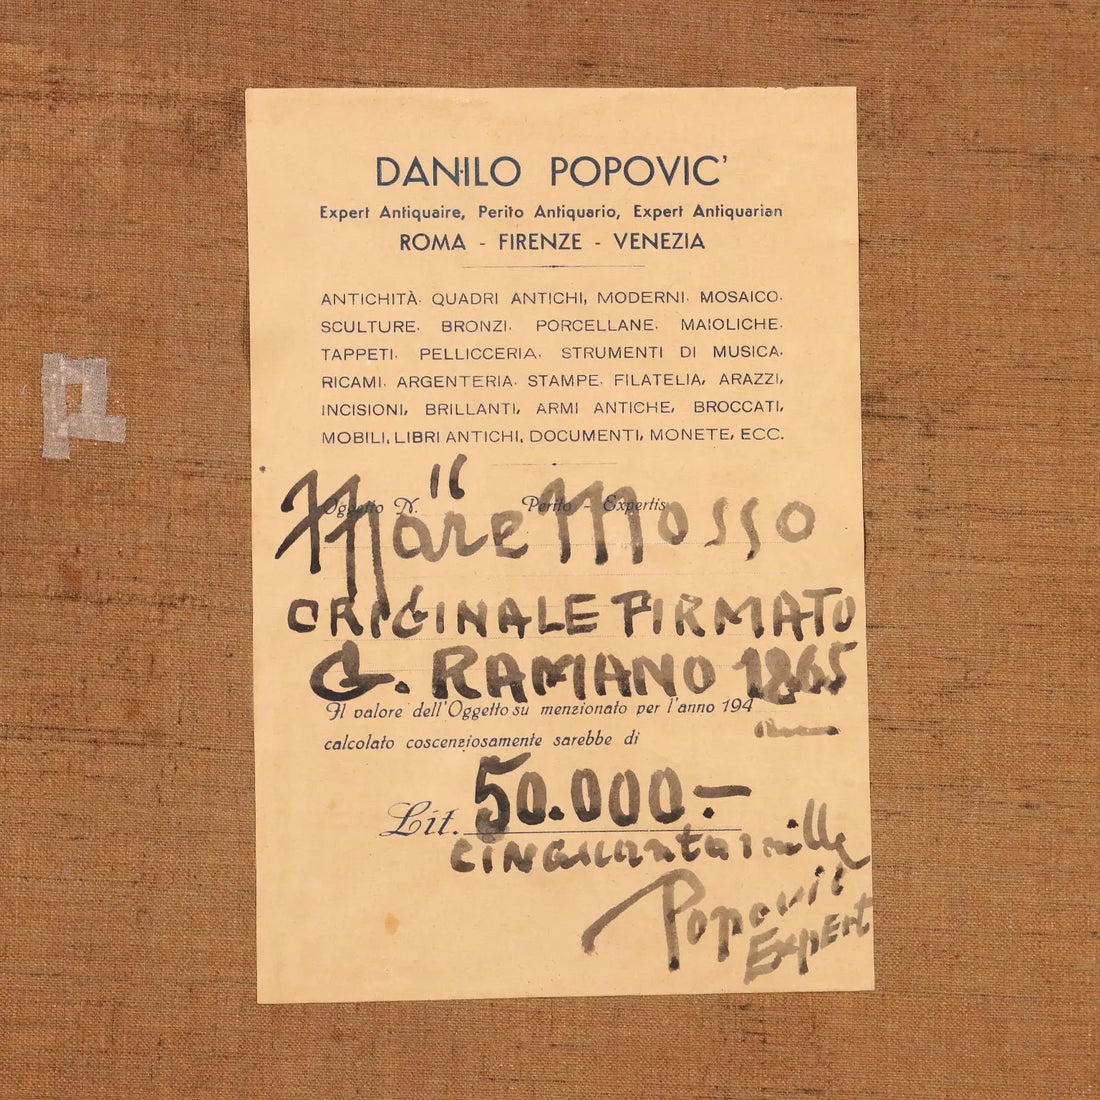 DANILO POPOVIC'
Expert Antiquaire, Perito Antiquario, Expert Antiquarian
ROMA - FIRENZE - VENEZIA
ANTICHITÀ. QUADRI ANTICHI, MODERNI. MOSAICO.
SCULTURE. BRONZI. PORCELLANE. MAIOLICHE.
TAPPETI. PELLICCERIA. STRUMENTI DI MUSICA.
RICAMI. ARGENTERIA. STAMPE. FILATELIA, ARAZZI,
INCISIONI, BRILLANTI, ARMI ANTICHE, BROCCATI,
MOBILI, LIBRI ANTICHI, DOCUMENTI, MONETE, ECC.
Oggetto N. Perito - Expertis
Mare Mosso
ORIGINALE FIRMATO
G. RAMANO 1865
Il valore dell'Oggetto su menzionato per l'anno 194
calcolato coscenziosamente sarebbe di
Lit. 50.000.-
cinquantamille
Popovic
Expert